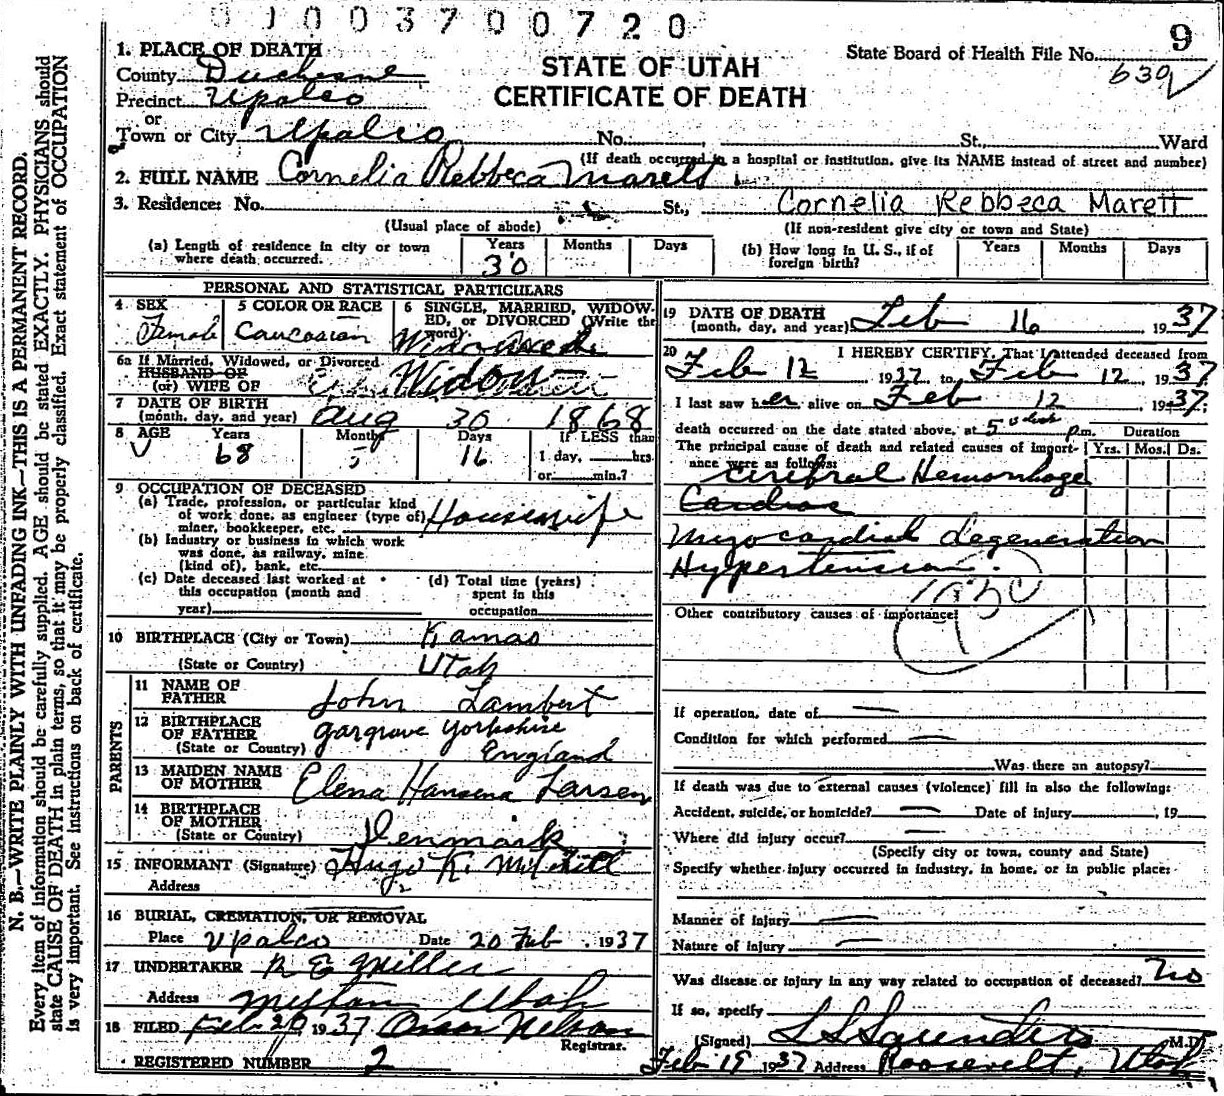 0100370 0720
9
State Board of Health File No.
639
STATE OF UTAH
CERTIFICATE OF DEATH
1. PLACE OF DEATH
County Duchesne
Precinct Upalco
or
Town or City Upalco No. , St., Ward
(If death occurred in a hospital or institution, give its NAME instead of street and number)
2. FULL NAME Cornelia Rebbeca Marett
3. Residence: No. St., Cornelia Rebbeca Marett
(Usual place of abode) (If non-resident give city or town and State)
(a) Length of residence in city or town where death occurred. Years 30 Months Days
(b) How long in U. S., if of foreign birth? Years Months Days
PERSONAL AND STATISTICAL PARTICULARS
4 SEX Female
5 COLOR OR RACE Caucasian
6 SINGLE, MARRIED, WIDOWED, or DIVORCED (Write the word) Widowed
6a If Married, Widowed, or Divorced
HUSBAND OF
(or) WIFE OF Widow
7 DATE OF BIRTH
(month, day, and year) Aug 30 1868
8 AGE Years 68 Months 5 Days 16 If LESS than
1 day, hrs.
or min.?
9 OCCUPATION OF DECEASED
(a) Trade, profession, or particular kind
of work done, as engineer (type of) Housewife
miner, bookkeeper, etc.
(b) Industry or business in which work
was done, as railway, mine
(kind of), bank, etc.
(c) Date deceased last worked at
this occupation (month and
year)
(d) Total time (years)
spent in this
occupation
10 BIRTHPLACE (City or Town) Kamas
(State or Country) Utah
PARENTS
11 NAME OF FATHER John Lambert
12 BIRTHPLACE OF FATHER Gargrave Yorkshire
(State or Country) England
13 MAIDEN NAME OF MOTHER Elena Hansena Larsen
14 BIRTHPLACE OF MOTHER
(State or Country) Denmark
15 INFORMANT (Signature) Hugo K. Mitchell
Address
16 BURIAL, CREMATION, OR REMOVAL
Place Upalco Date 20 Feb , 1937
17 UNDERTAKER R E Miller
Address Myton Utah
18 FILED Feb 20 1937 Oscar Nelson
Registrar.
REGISTERED NUMBER 2
19 DATE OF DEATH
(month, day, and year) Feb 16 1937
20 I HEREBY CERTIFY, That I attended deceased from
Feb 12 1937 to Feb 12, 1937
I last saw her alive on Feb 12, 1937
death occurred on the date stated above, at 5 o'clock p.m. Duration
The principal cause of death and related causes of importance were as follows: Yrs. Mos. Ds.
Cerebral Hemorrhage
Cardiac
Myocardial degeneration
Hypertension.
Other contributory causes of importance:
If operation, date of —
Condition for which performed —
Was there an autopsy?
If death was due to external causes (violence) fill in also the following:
Accident, suicide, or homicide? — Date of injury , 19
Where did injury occur? —
(Specify city or town, county and State)
Specify whether injury occurred in industry, in home, or in public place:
Manner of injury —
Nature of injury —
Was disease or injury in any way related to occupation of deceased? no
If so, specify
(Signed) L S Saunders M.D.
Feb 19 1937 Address Roosevelt, Utah
N. B.—WRITE PLAINLY WITH UNFADING INK—THIS IS A PERMANENT RECORD.
Every item of information should be carefully supplied. AGE should be stated EXACTLY. PHYSICIANS should
state CAUSE OF DEATH in plain terms, so that it may be properly classified. Exact statement of OCCUPATION
is very important. See instructions on back of certificate.